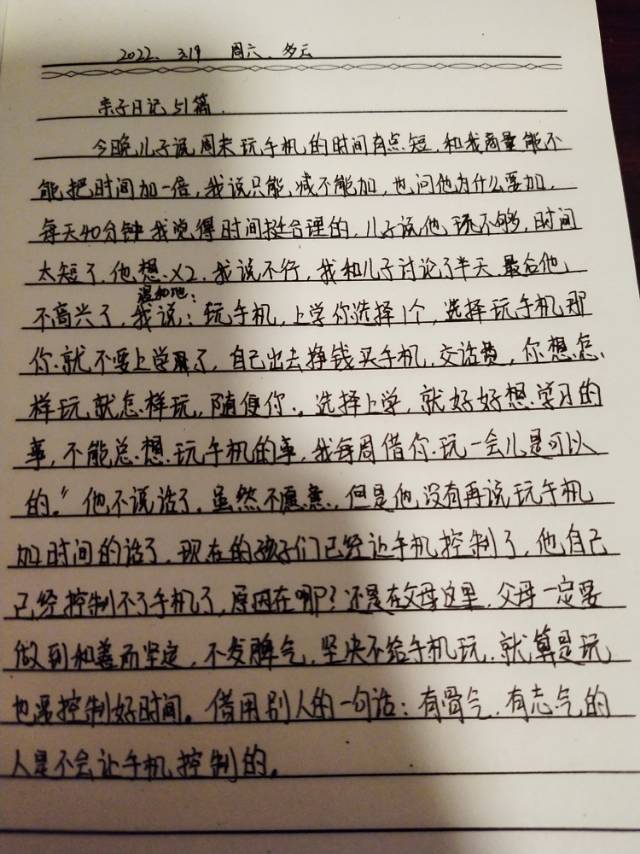 2022. 3.19 周六. 多云
亲子日记51篇.
今晚儿子说周末玩手机的时间有点短,和我商量能不
能把时间加一倍,我说只能减不能加,也问他为什么要加,
每天40分钟我觉得时间挺合理的,儿子说他玩不够,时间
太短了,他想X2,我说不行,我和儿子讨论了半天,最后他
温和地:
不高兴了,我说:玩手机,上学你选择1个,选择玩手机那
你就不要上学了,自己出去挣钱买手机,交话费,你想怎
样玩就怎样玩,随便你.,选择上学,就好好想学习的
事,不能总想玩手机的事,我每周借你玩一会儿是可以
的。"他不说话了,虽然不愿意,但是他没有再说玩手机
加时间的话了,现在的孩子们已经让手机控制了,他自己
已经控制不了手机了,原因在哪?还是在父母这里,父母一定要
做到和善而坚定,不发脾气,坚决不给手机玩,就算是玩
也要控制好时间。借用别人的一句话:有骨气,有志气的
人是不会让手机控制的。